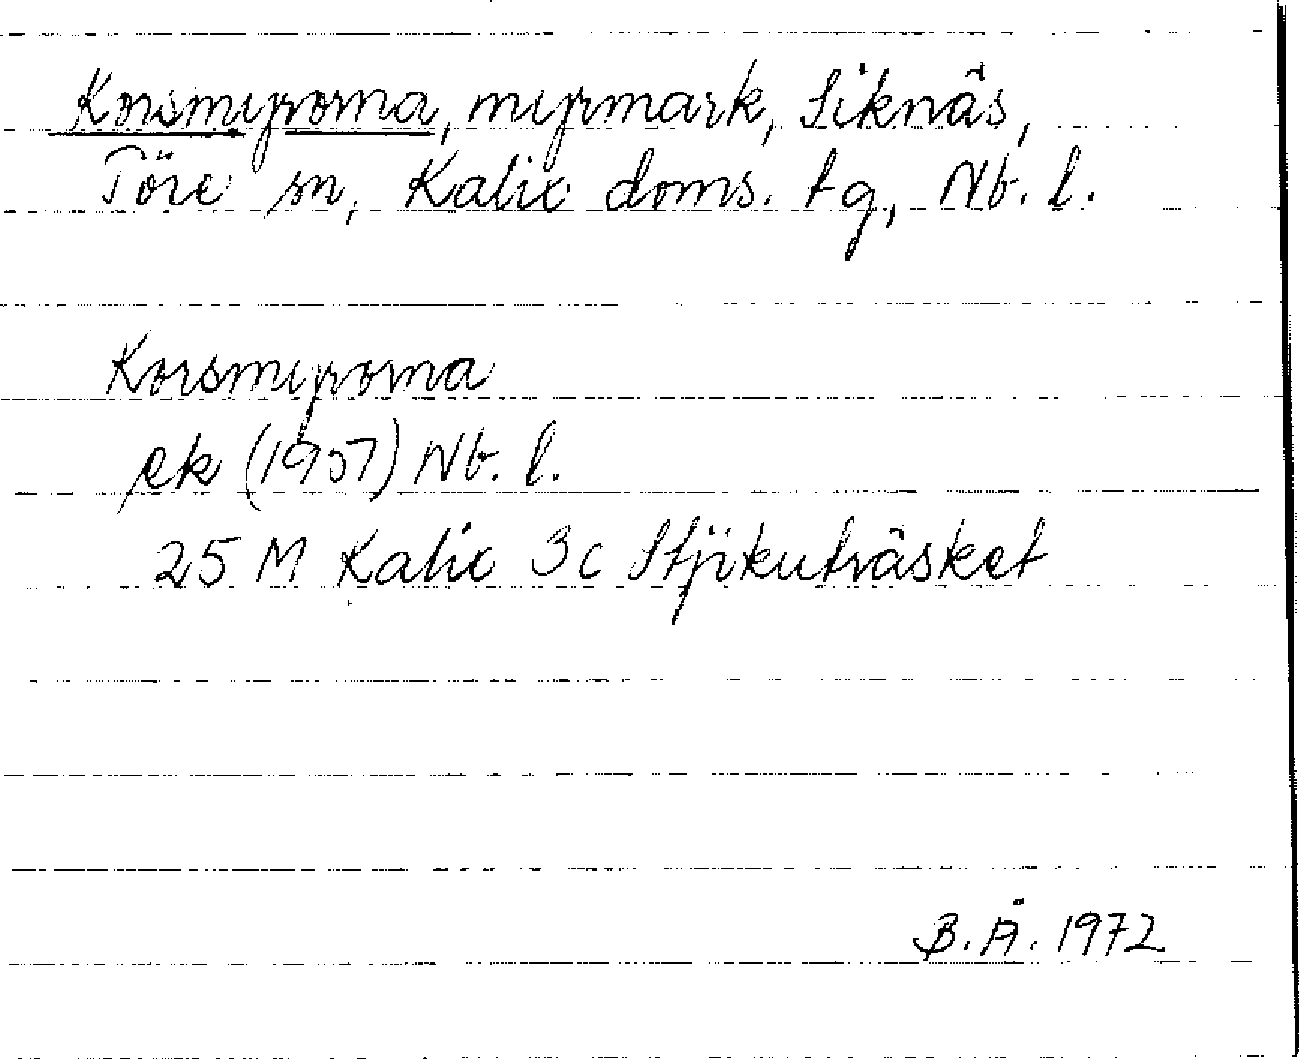 Korsmyrorna, myrmark, Siknäs,
Töre sn, Kalix doms. tg, Nb. l.
Korsmyrorna
ek (1957) Nb. l.
25 M Kalix 3c Stjikuträsket
B. Å. 1972